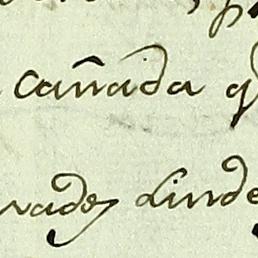 cañada
vades linde